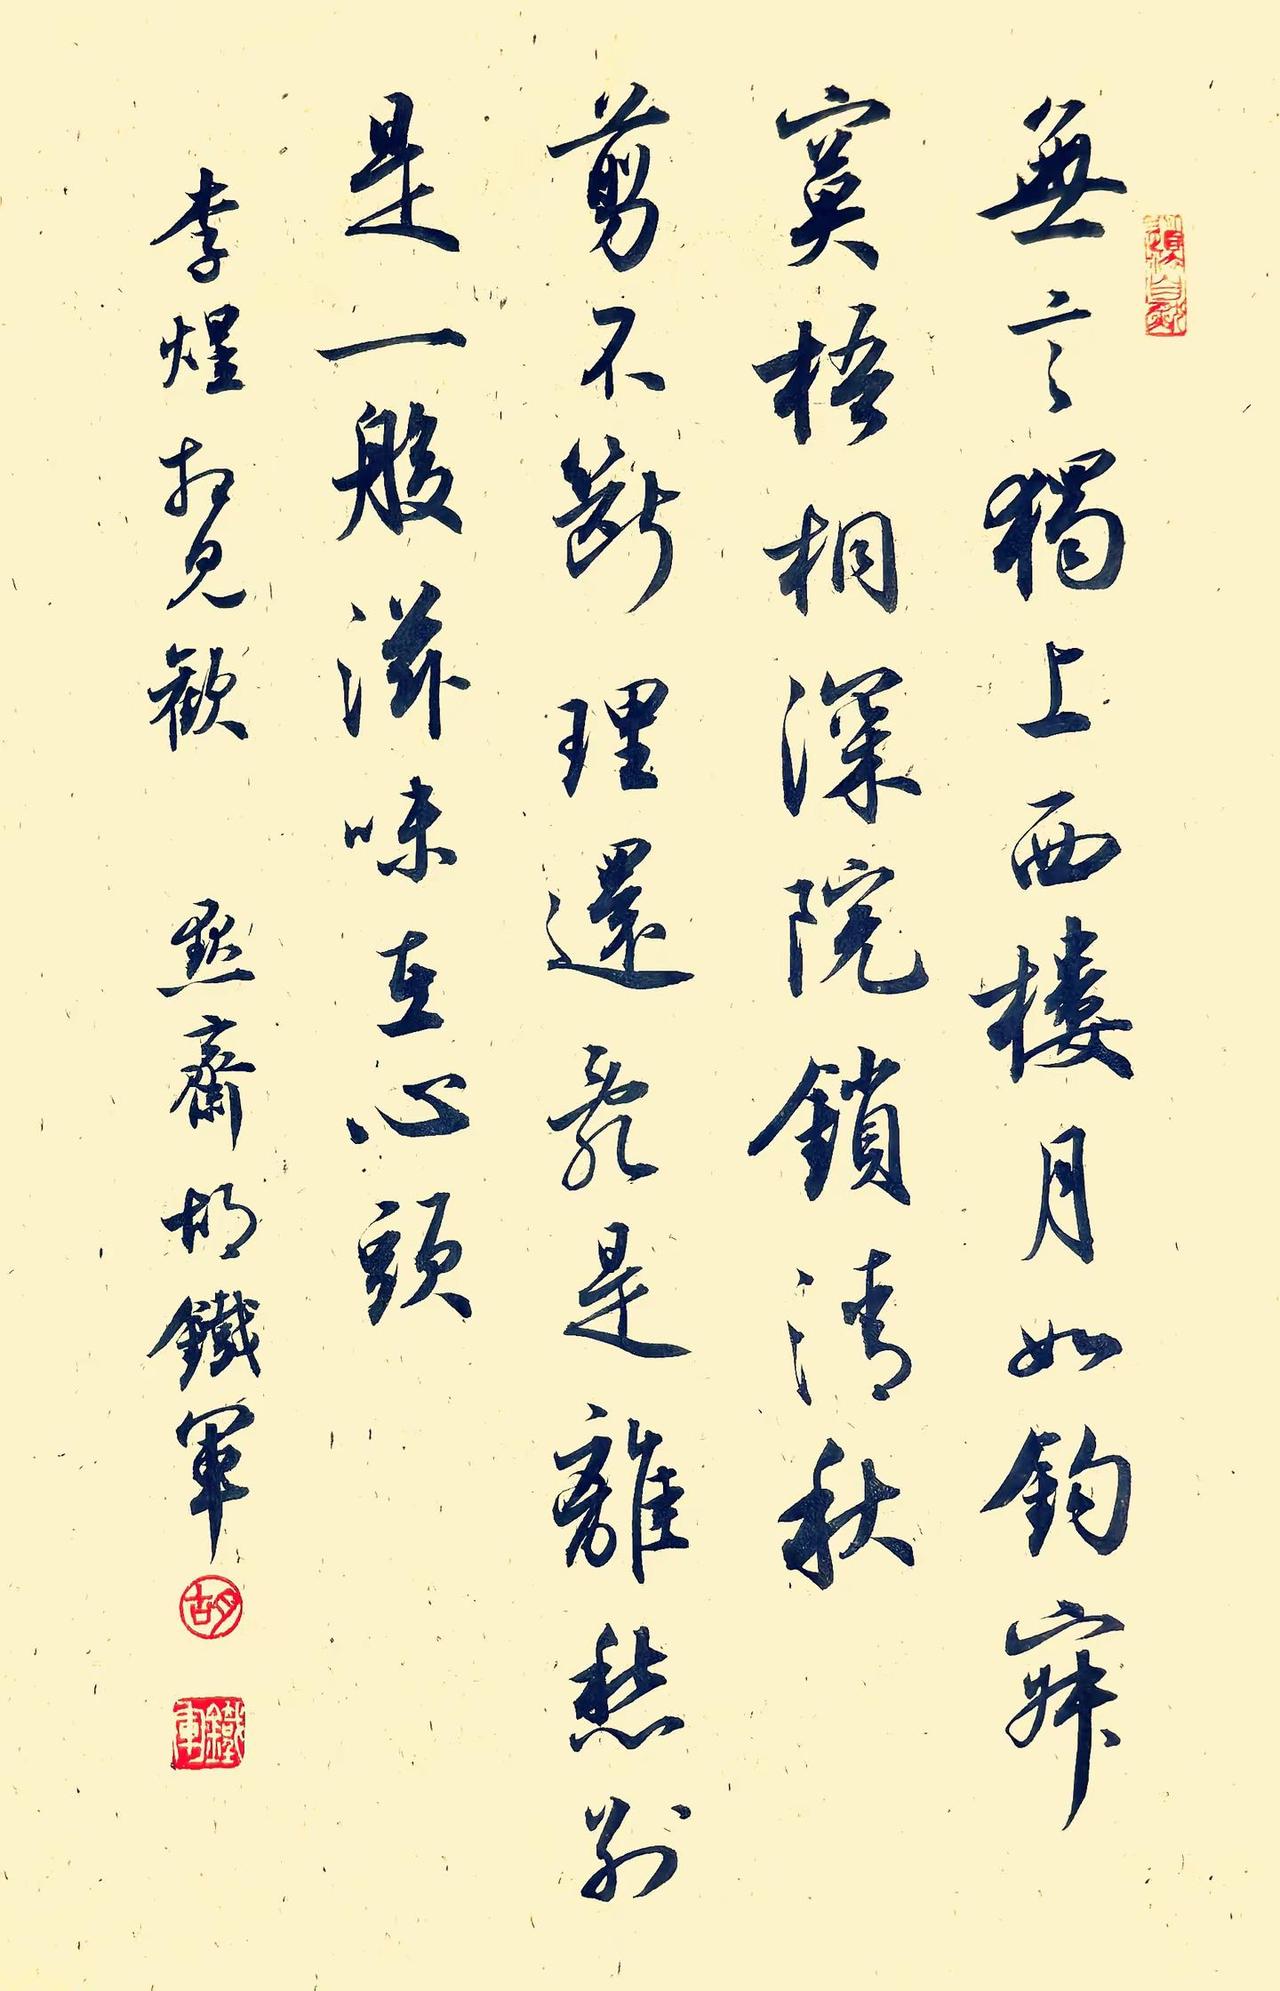 無言獨上西樓月如鈎寂
寞梧桐深院鎖清秋
剪不斷理還亂是離愁別
是一般滋味在心頭
李煜相見歡 默齋胡鐵軍
胡
鐵軍